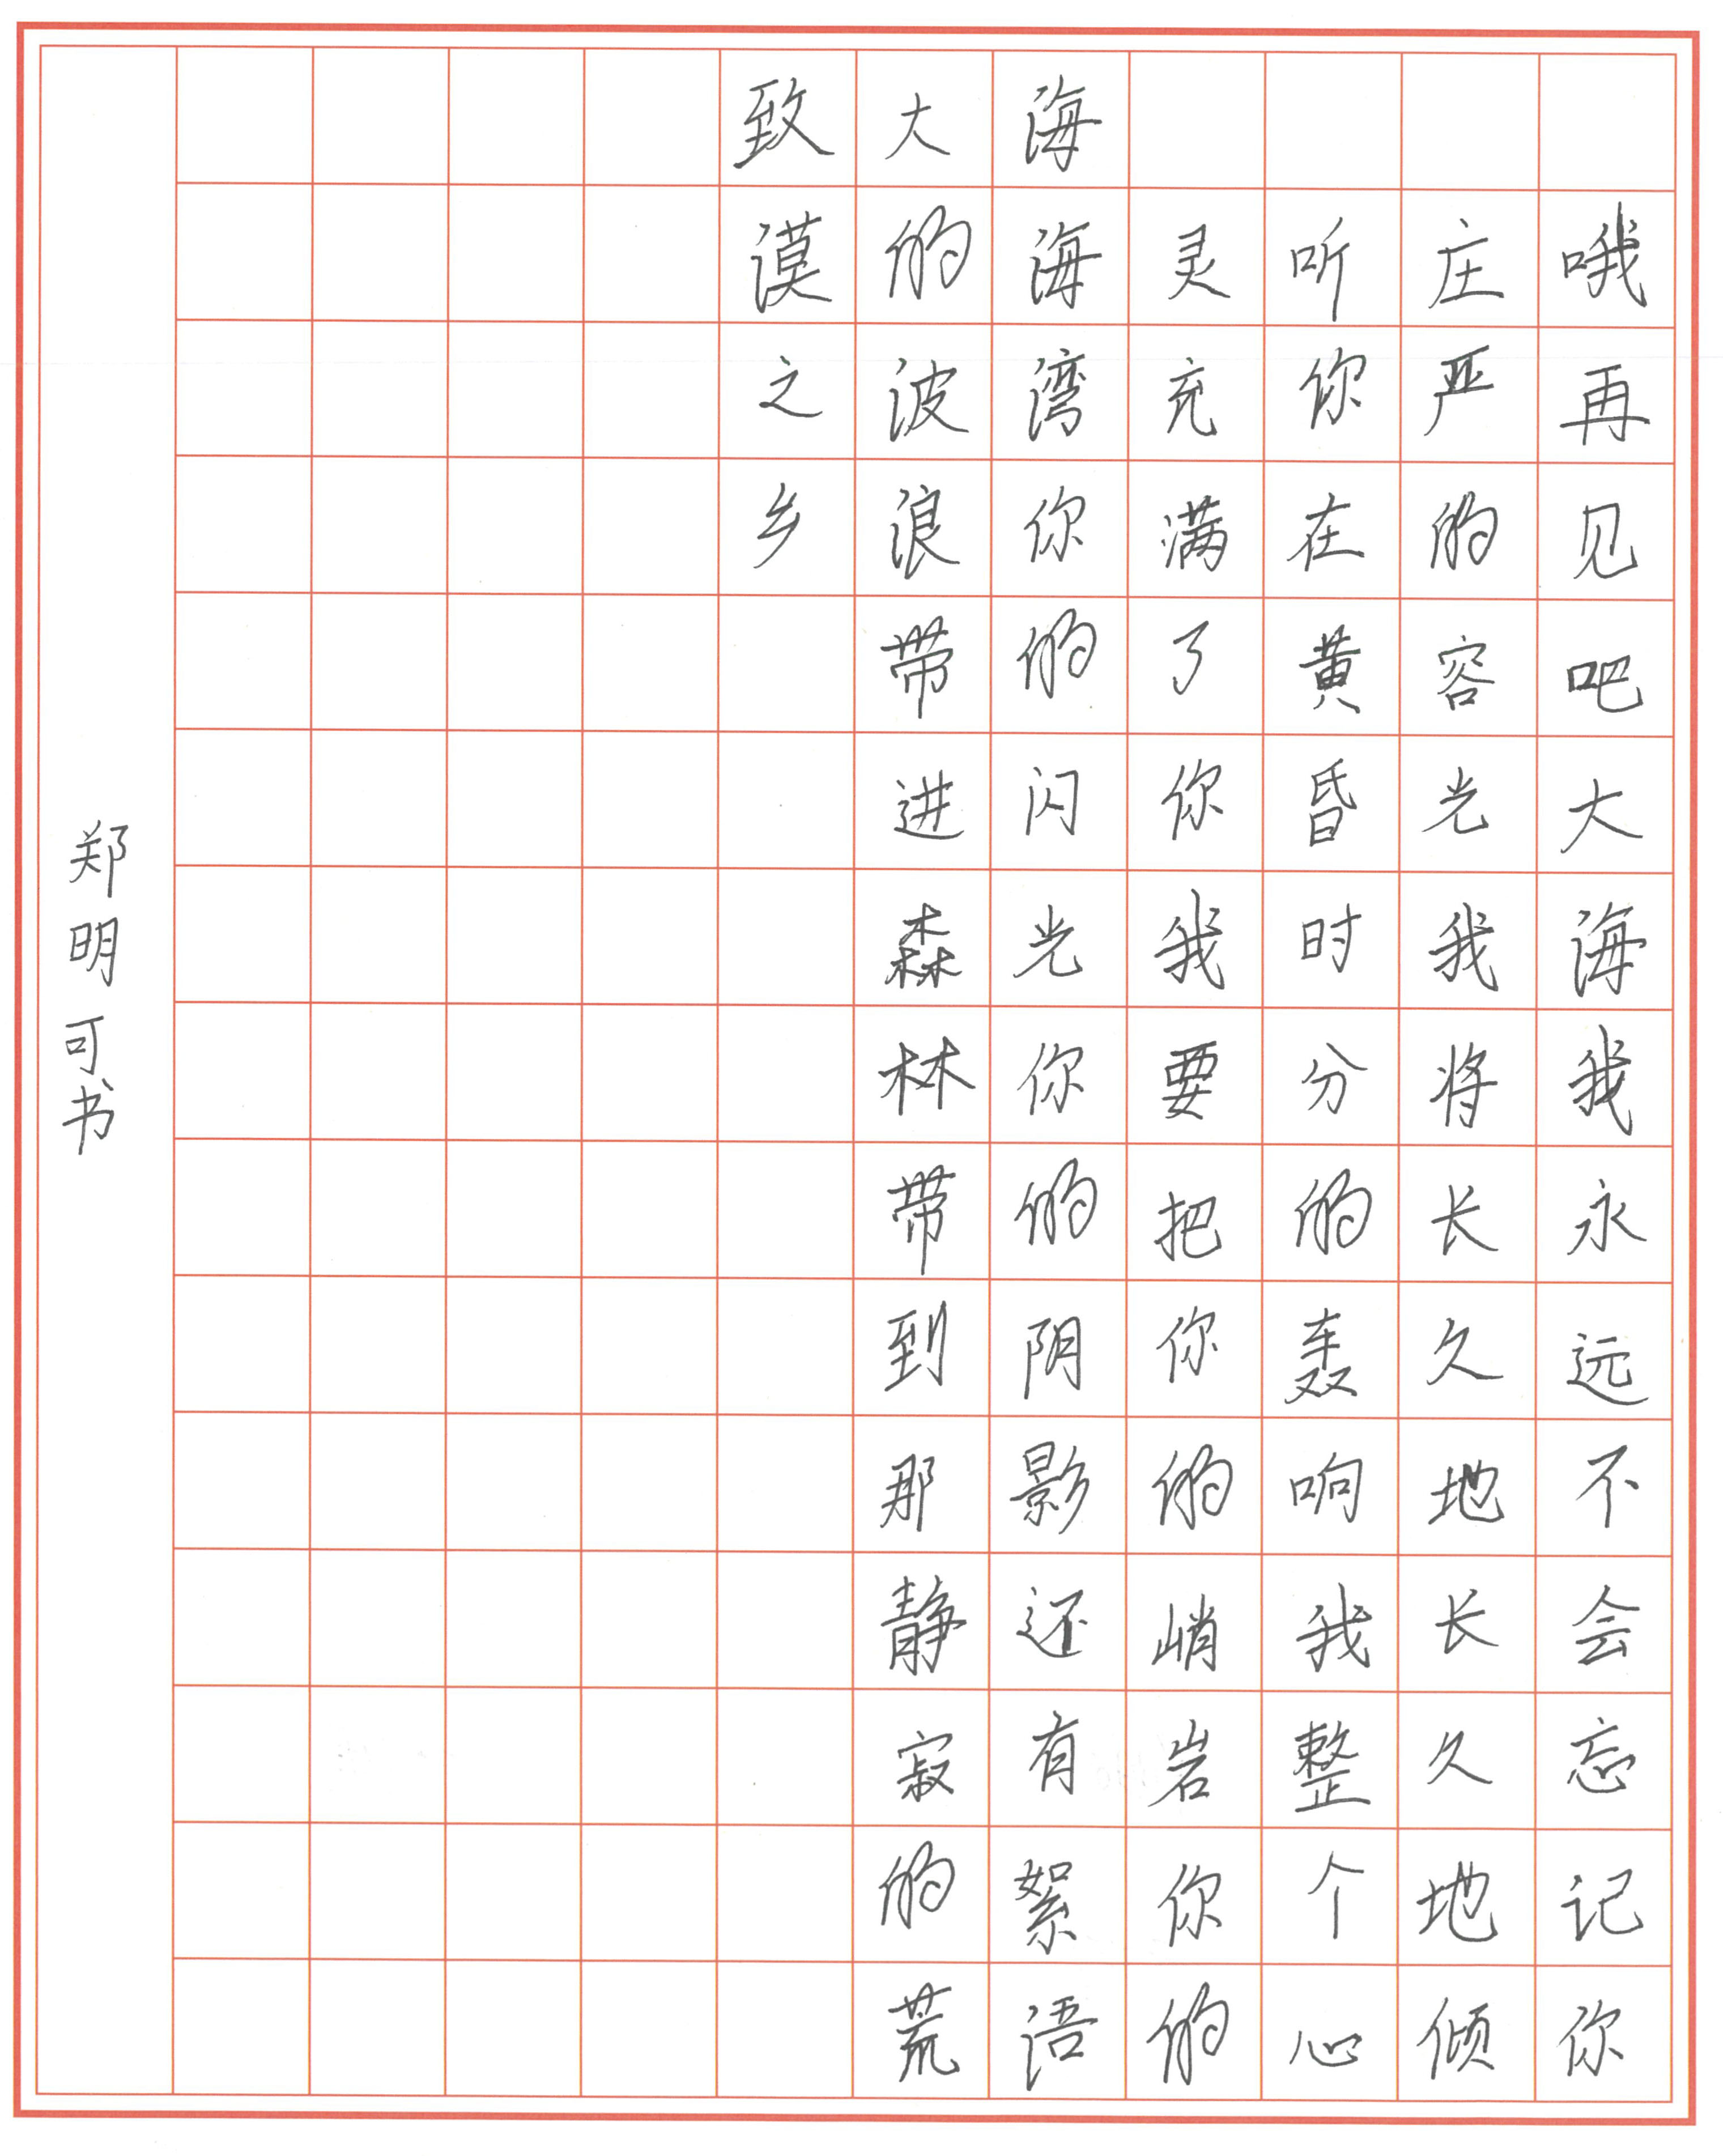 致大海
哦再见吧大海我永远不会忘记你
庄严的容光我将长久地长久地倾
听你在黄昏时分的轰响我整个心
灵充满了你我要把你的峭岩你的
海湾你的闪光你的阴影还有絮语
的波浪带进森林带到那静寂的荒
漠之乡
郑明可书